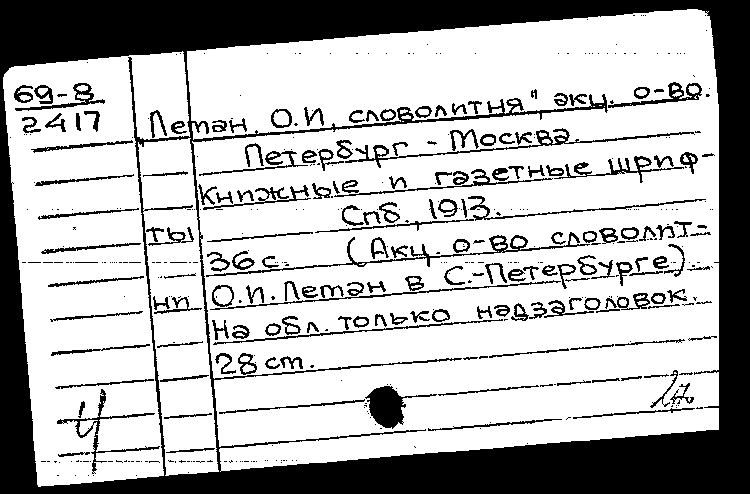 69-8
2417
„Леман, О.И, словолитня", акц. о-во.
Петербург - Москва.
Книжные и газетные шриф-
ты. Спб., 1913.
36 с. (Акц. о-во словолит-
ни О.И. Леман в С.-Петербурге).
На обл. только надзаголовок.
28 cm.
Ч